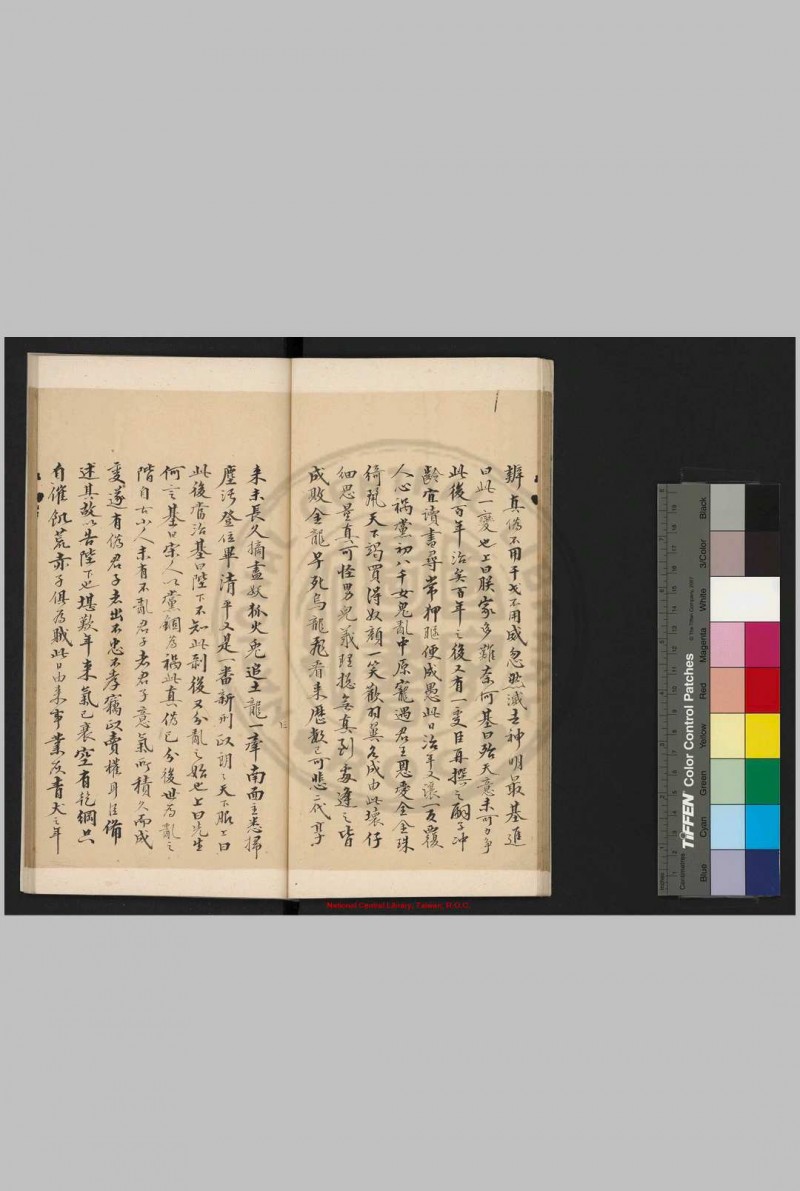 辨真偽不用干戈不用威忽然滅去神明最基進
曰此一變也上曰朕家多難奈何基曰殆天意未可力爭
此後百年治矣百年之後又有一變臣再撰之嗣子冲
齡宜讀書尋常押
便成愚此日治年又
一反覆
人心禍黨初八千女鬼亂中原寵遇君王恩愛全金珠
綺
天下竭買得奴顏一笑歡羽翼名成由此壞仔
細思量真可怪男兒義理
無真到處逢之皆
成敗金龍早死烏龍飛看來歷數已可悲二代享
來未長久搞盡妖
火兔追土龍一牽南面立悉掃
塵污登位畢清平又是一番新刑政朗々天下服上曰
此後當治基曰陛下不知此剖後又分亂之始也上曰先生
何言基曰宋人以黨錮為禍此真偽已分後世為亂之
階自古小人未有不亂君子去君子意氣所積久而成
變遂有偽君子去出不忠不孝竊以賣權身任備
述其故以告陛下也堪歎年來氣已衰空有乾綱只
自催飢荒赤子俱為賊此日由來事業灰青犬之年
National Central Library, Taiwan, R.O.C.
TIFFEN Color Control Patches
© The Tiffen Company, 2007
Blue
Cyan
Green
Yellow
Red
Magenta
White
3/Color
Black
Centimetres
Inches